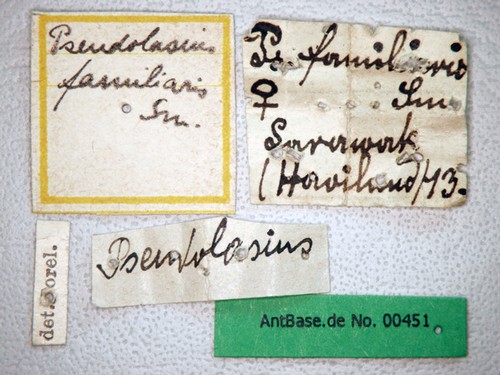 Pseudolasius
familiaris
Sm.
Ps. familiaris
♀ Sm.
Sarawak
(Haviland) 43.
det. Forel.
Pseudolasius
AntBase.de No. 00451